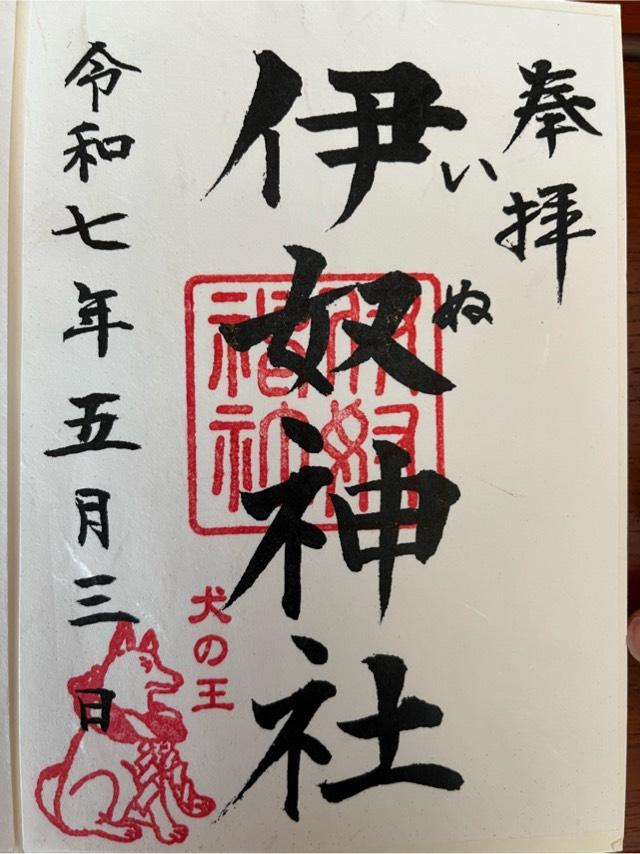 奉拝
伊奴神社
いぬ
伊奴神社
犬の王
令和七年五月三日